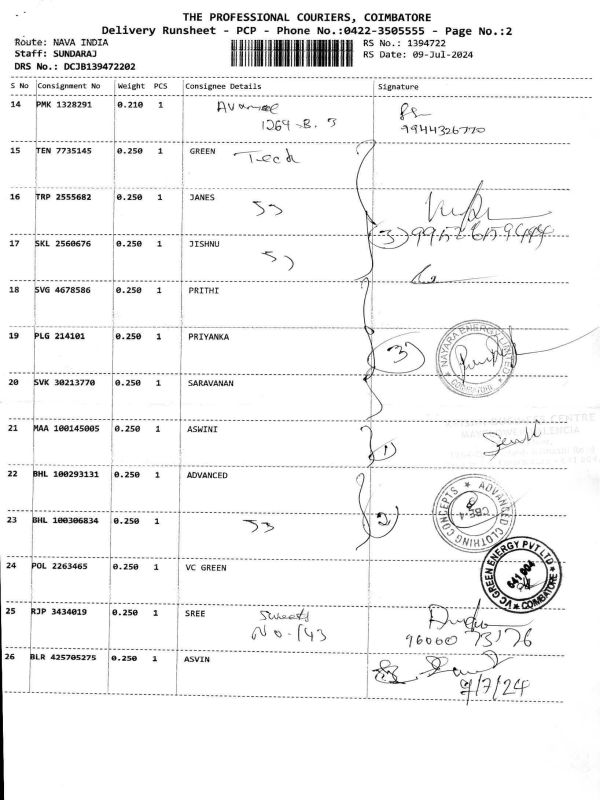 THE PROFESSIONAL COURIERS, COIMBATORE
Delivery Runsheet - PCP - Phone No.:0422-3505555 - Page No.:2
Route: NAVA INDIA
RS No.: 1394722
Staff: SUNDARAJ
RS Date: 09-Jul-2024
DRS No.: DCJB139472202
S No Consignment No Weight PCS Consignee Details Signature
14 PMK 1328291 0.210 1
1264-B. 3
9944326770
15 TEN 7735145 0.250 1 GREEN Tech
16 TRP 2555682 0.250 1 JANES
17 SKL 2560676 0.250 1 JISHNU (3)
18 SVG 4678586 0.250 1 PRITHI
19 PLG 214101 0.250 1 PRIYANKA (3) NAYARA ENERGY LIMITED
20 SVK 30213770 0.250 1 SARAVANAN
21 MAA 100145005 0.250 1 ASWINI (1)
22 BHL 100293131 0.250 1 ADVANCED
23 BHL 100306834 0.250 1 (2) ADVANCED CLOTHING CONCEPTS CBE-4
24 POL 2263465 0.250 1 VC GREEN VC GREEN ENERGY PVT LTD 641 004 COIMBATORE
25 RJP 3434019 0.250 1 SREE Sweets
No-143 96000 73176
26 BLR 425705275 0.250 1 ASVIN
9/7/24